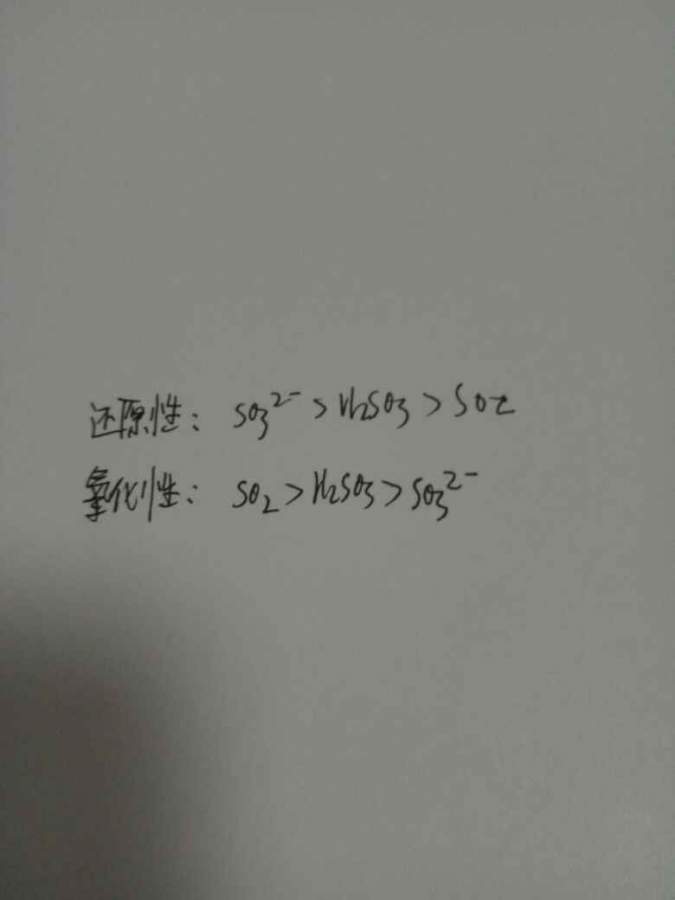 还原性: SO₃²⁻ > H₂SO₃ > SO₂
氧化性: SO₂ > H₂SO₃ > SO₃²⁻